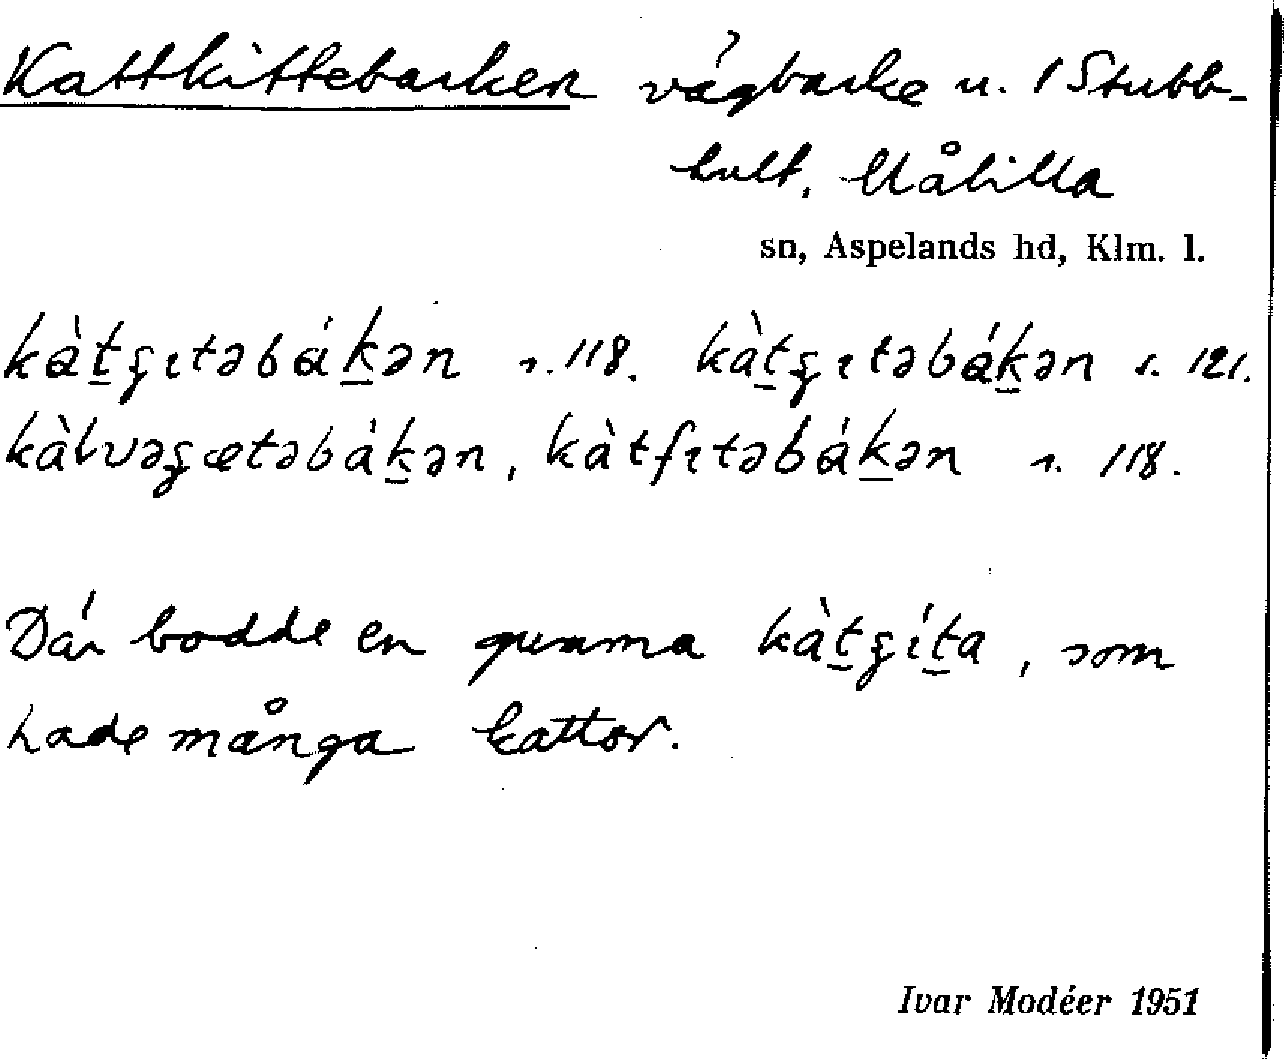 Kattkittebacken vägbacke u. 1 Stubb-
hult, Målilla
sn, Aspelands hd, Klm. l.
kàt̠ʂɪtəbák̠ən s. 118. kàt̠ʂɪtəbák̠ən s. 121.
kàlvəʂætəbák̠ən, kàtʃɪtəbák̠ən s. 118.
Där bodde en gumma kàt̠ʂít̠a, som
hade många kattor.
Ivar Modéer 1951